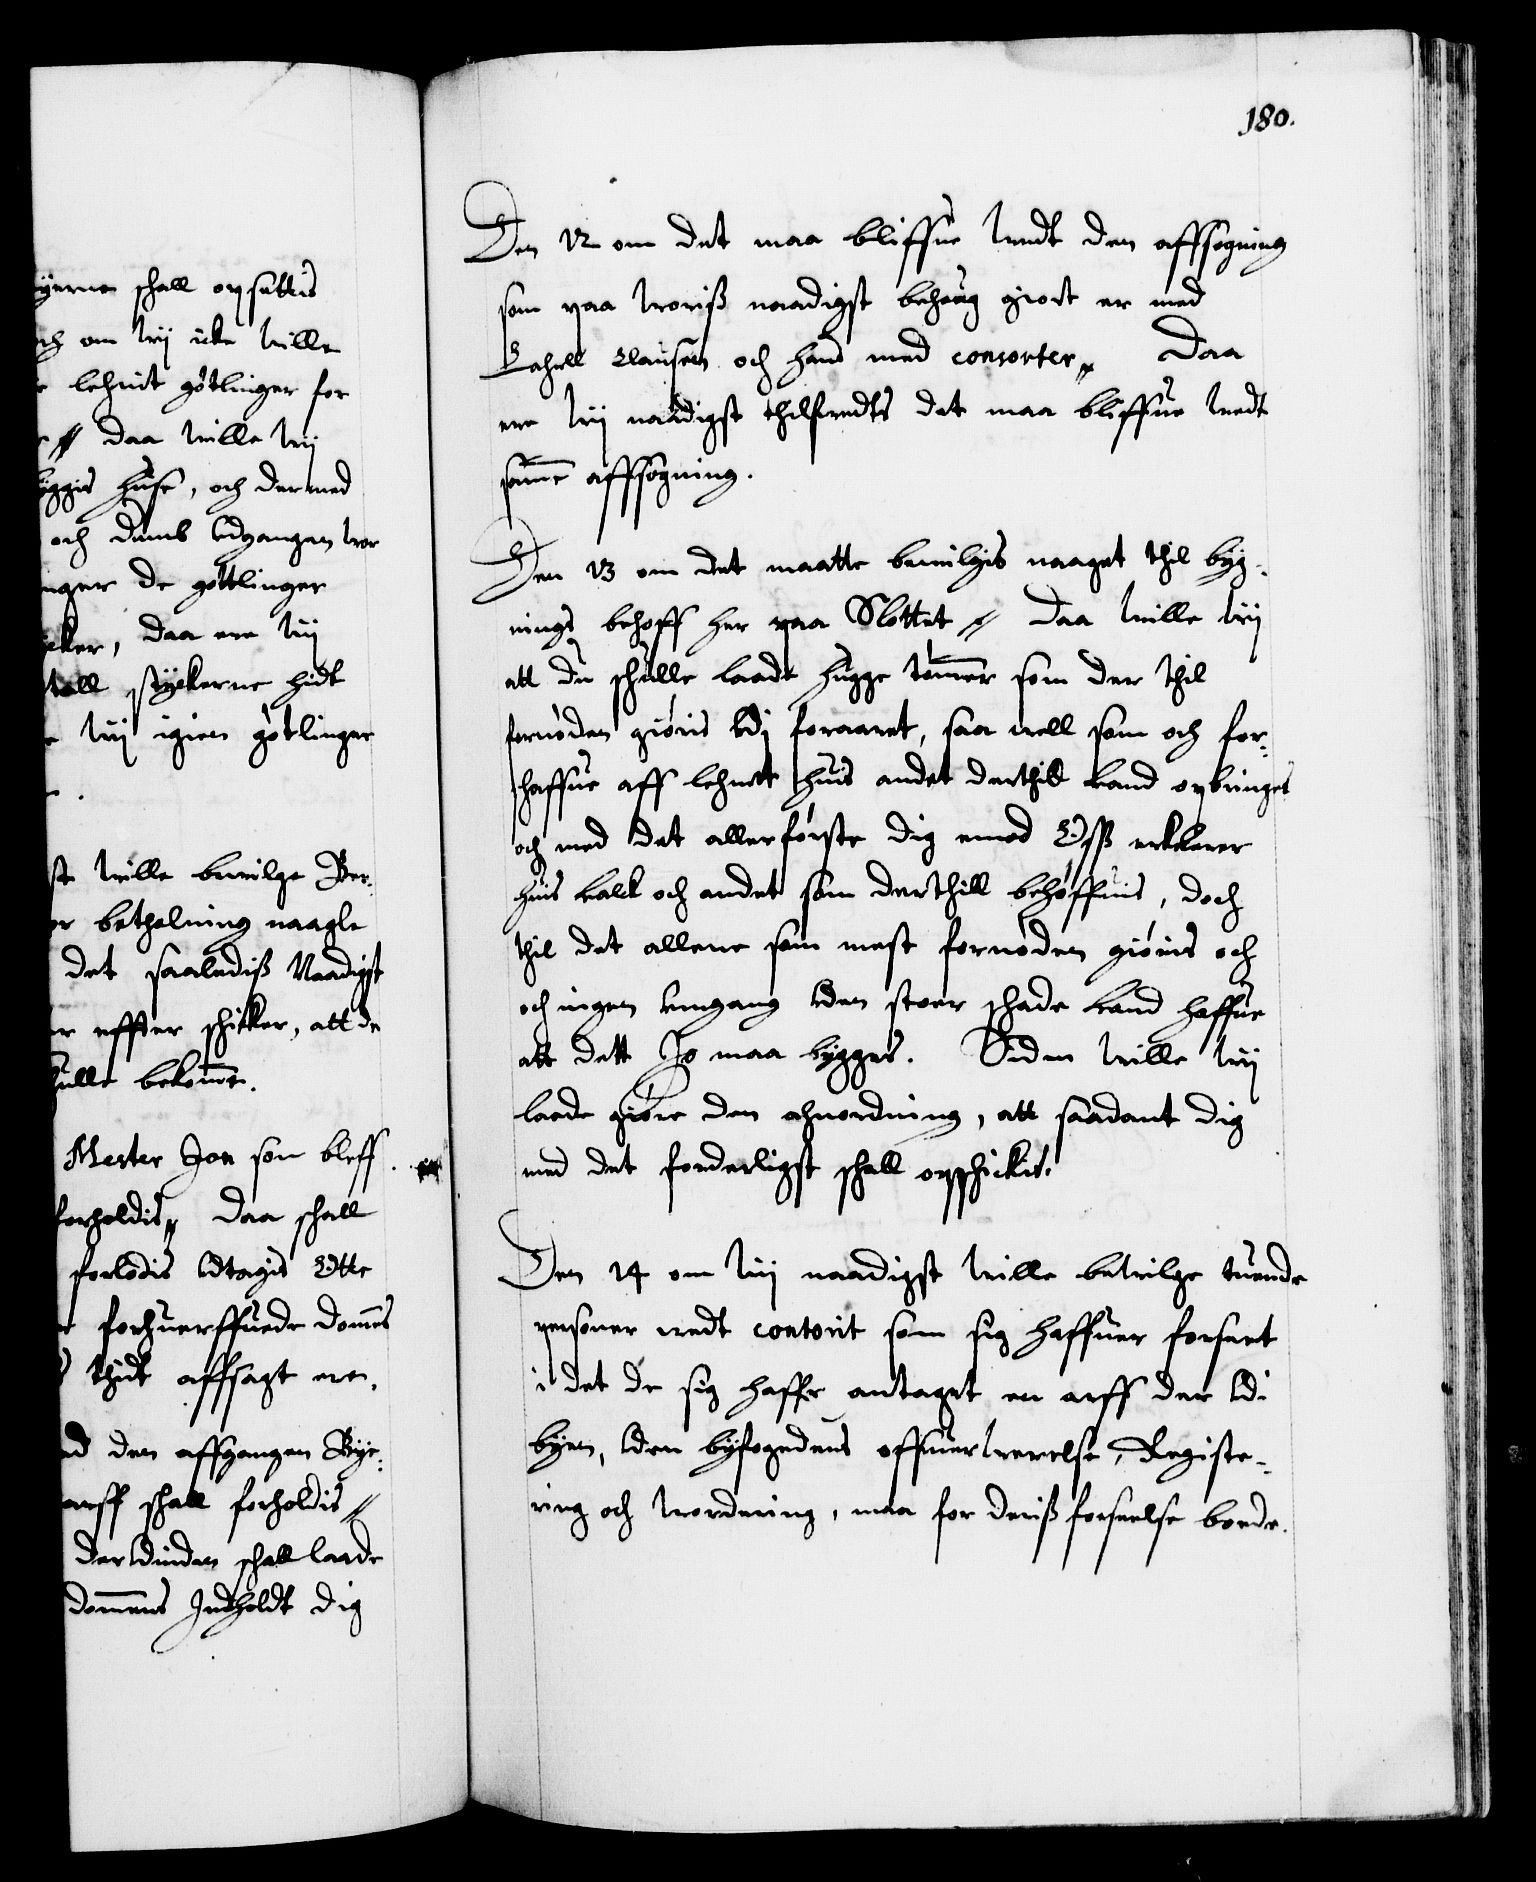 yerne schall opsettis
och om wij icke wille
lehnit götlinger for
daa wille wij
byggis huse, och dermed
och dennd Udgangen wor
inger de göttlinger
cker, daa ere wij
tall styckerne hidt
wij igien götlinger
wille bewilge Ber-
or bethalning naagle
det saalediß Naadigst
er effter schicker, att de
schulle bekomme.
Mester Jon som bleff
forholdis, daa schall
forlodis Udtagis Effte
forhuerffuede dommes
thidt affsagt ere.
ved den affgangen Bye-
arff schall forholdis
der Uinden schall laade
dommens Indholdt dig
180.
Den 12 om det maa bliffue wedt den affsogning
som paa woriß naadigst behaug giort er med
Lahell Clausen och hans med consorter, Daa
ere wij naadigst thilfredts det maa bliffue wedt
samme affsogning.
Den 13 om det maatte bewilgis naaget thil byg-
nings behoff her paa Slottet, Daa wille wij
att du schulle laade hugge tømmer som der thil
fornöden giöris Udj foraaret, saa well som och for-
schaffue aff lehnett huis andet derthill kand opbringes
och med det allerförste dig emod Oß erklerer
huis kalck och andet som derthill behöffuis, doch
thil det allene som mest fornöden giöris och
och ingen Umgang Uden stoer schade kand haffue
att dett Jo maa bygges. Siden wille wij
laade giöre den ahnordning, att saadant dig
med det forderligst schall opschickis.
Den 14 om wij naadigst wille bewilge tuende
personer wedt contorit som sig haffuer forseet
i det de sig haffr antaget en arff der Udi
byen, Uden byfogedens offuerwerelse, Registe-
ring och wordering, maa for deriß forseelse boede.